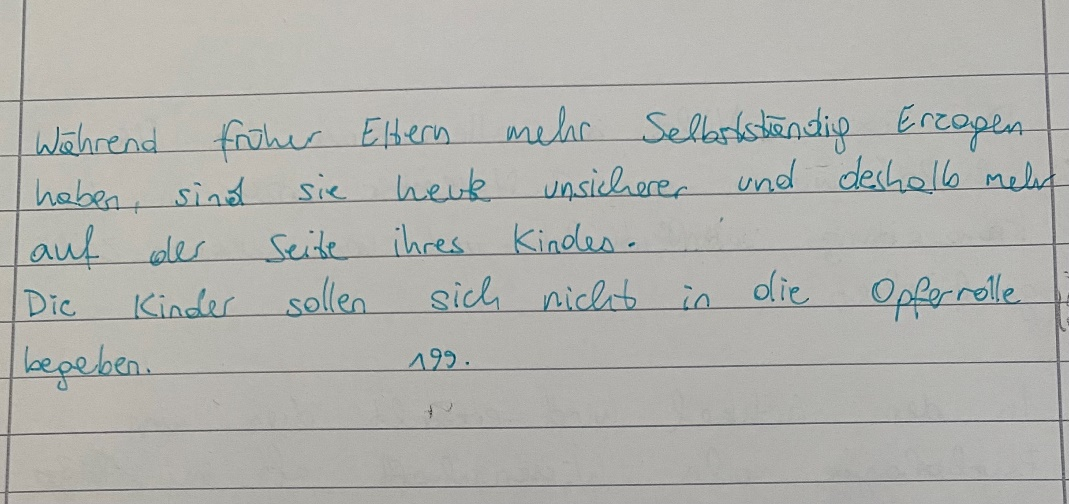 Während früher Eltern mehr Selbstständig Erzogen
haben, sind sie heute unsicherer und deshalb mehr
auf der Seite ihres Kindes.
Die Kinder sollen sich nicht in die Opferrolle
begeben. 199.